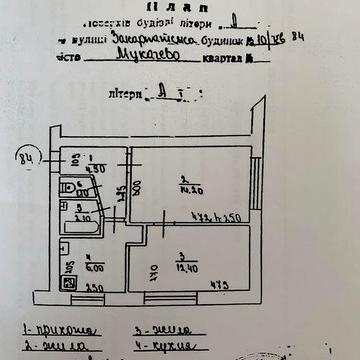 План
поверхів будівлі літери А
по вулиці Закарпатська будинок №10/кв 84
місто Мукачево квартал №
літери А
84
1
4.90
105
6
5
2.10
225
600
2
14.20
472 h.250
4
6,00
205
250
3
12,40
270
475
1- прихожа 3- жила
2- жила 4- кухня